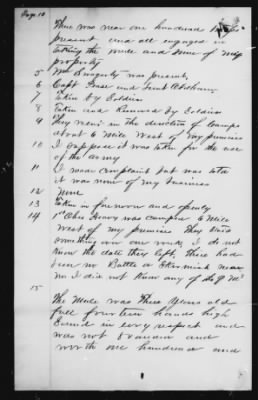 Page 10
There was near one hundred
present and all engaged in
taking the mule and some of my
property
5 Wm Swagerty was present,
6 Capt and Lieut
7 Taken by Soldiers
8 Taken and Removed by Soldiers
9 They went in the direction of camps
about 6 Mile West of my premises
10 I suppose it was taken for the use
of the army
11 I made complaint but was told
it was none of my business
12 None
13 Taken in forenoon and openly
14 1st Ohio was camped 6 Mile
West of my premises They staid
something over one week I do not
know the date they left, there had
been no Battle or Skirmish near
me I did not know any of the Q Ms
15
The Mule was Three Years old
full fourteen hands high
Sound in every respect and
was not and
worth one hundred and